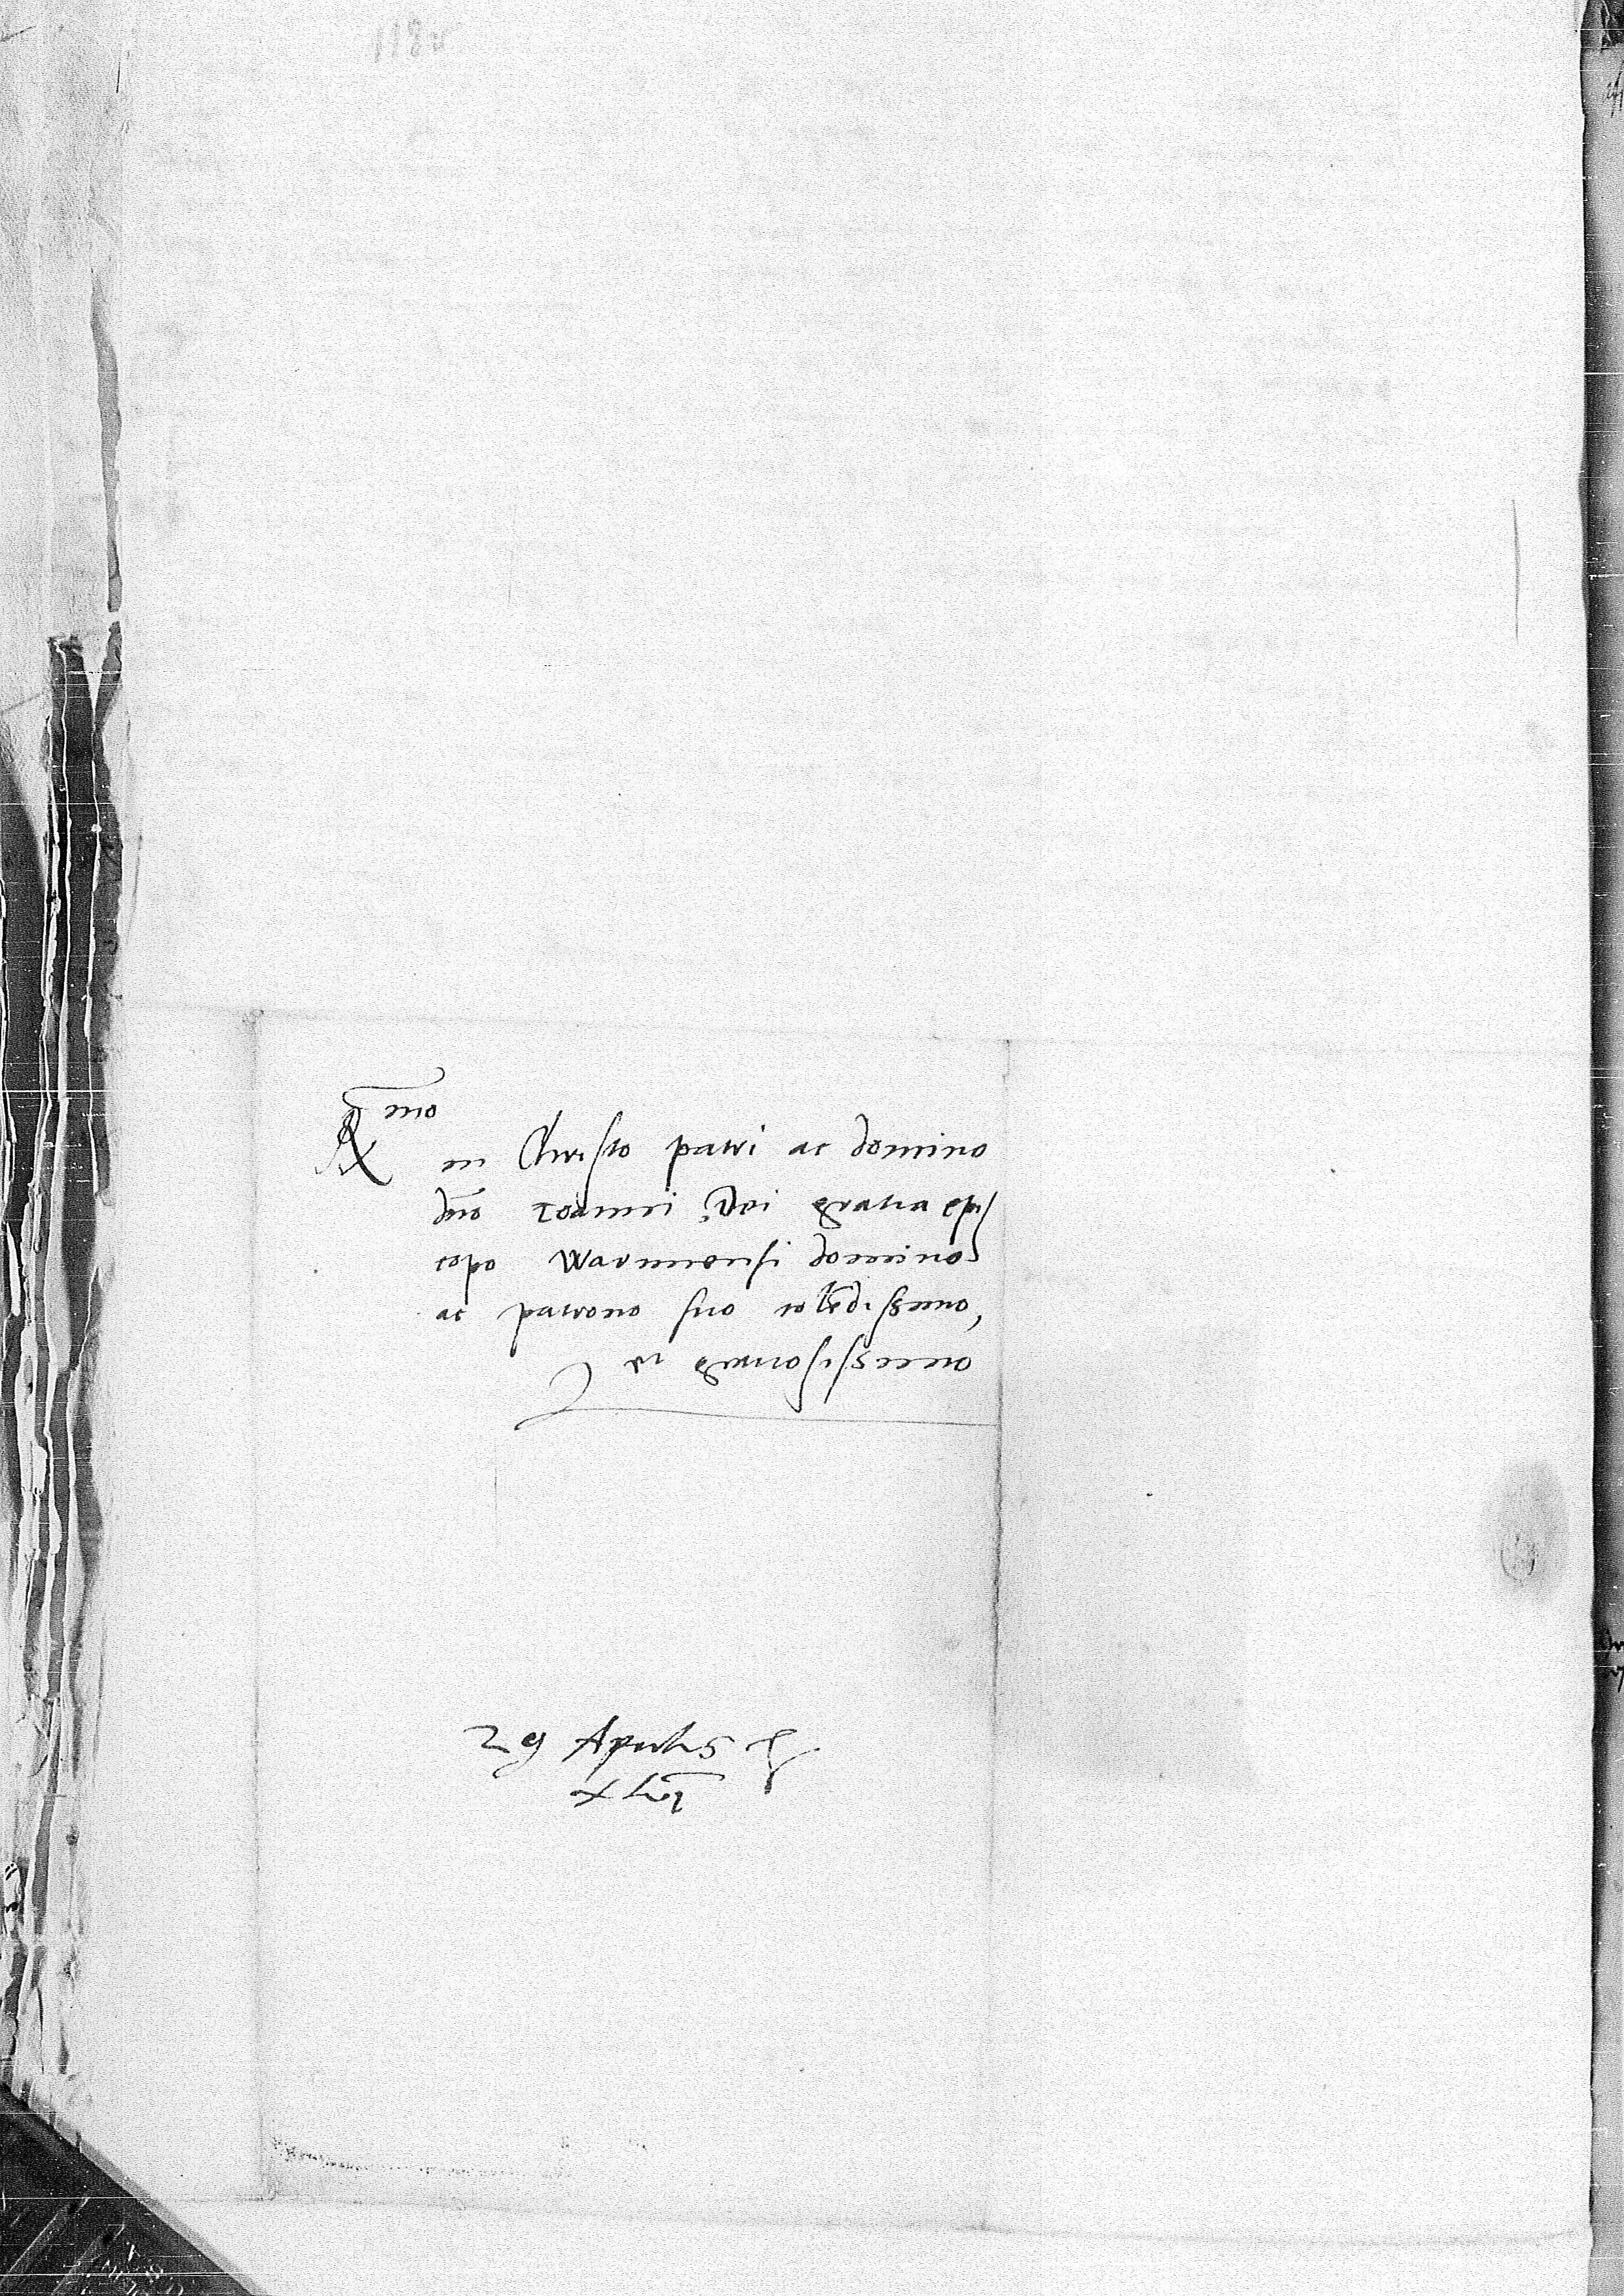 R mo
in Christo patri ac domino
dno Ioanni Dei gratia epis
copo Warmiensi domino
ac patrono suo colendissimo,
et gratiosissimo
29 Aprilis